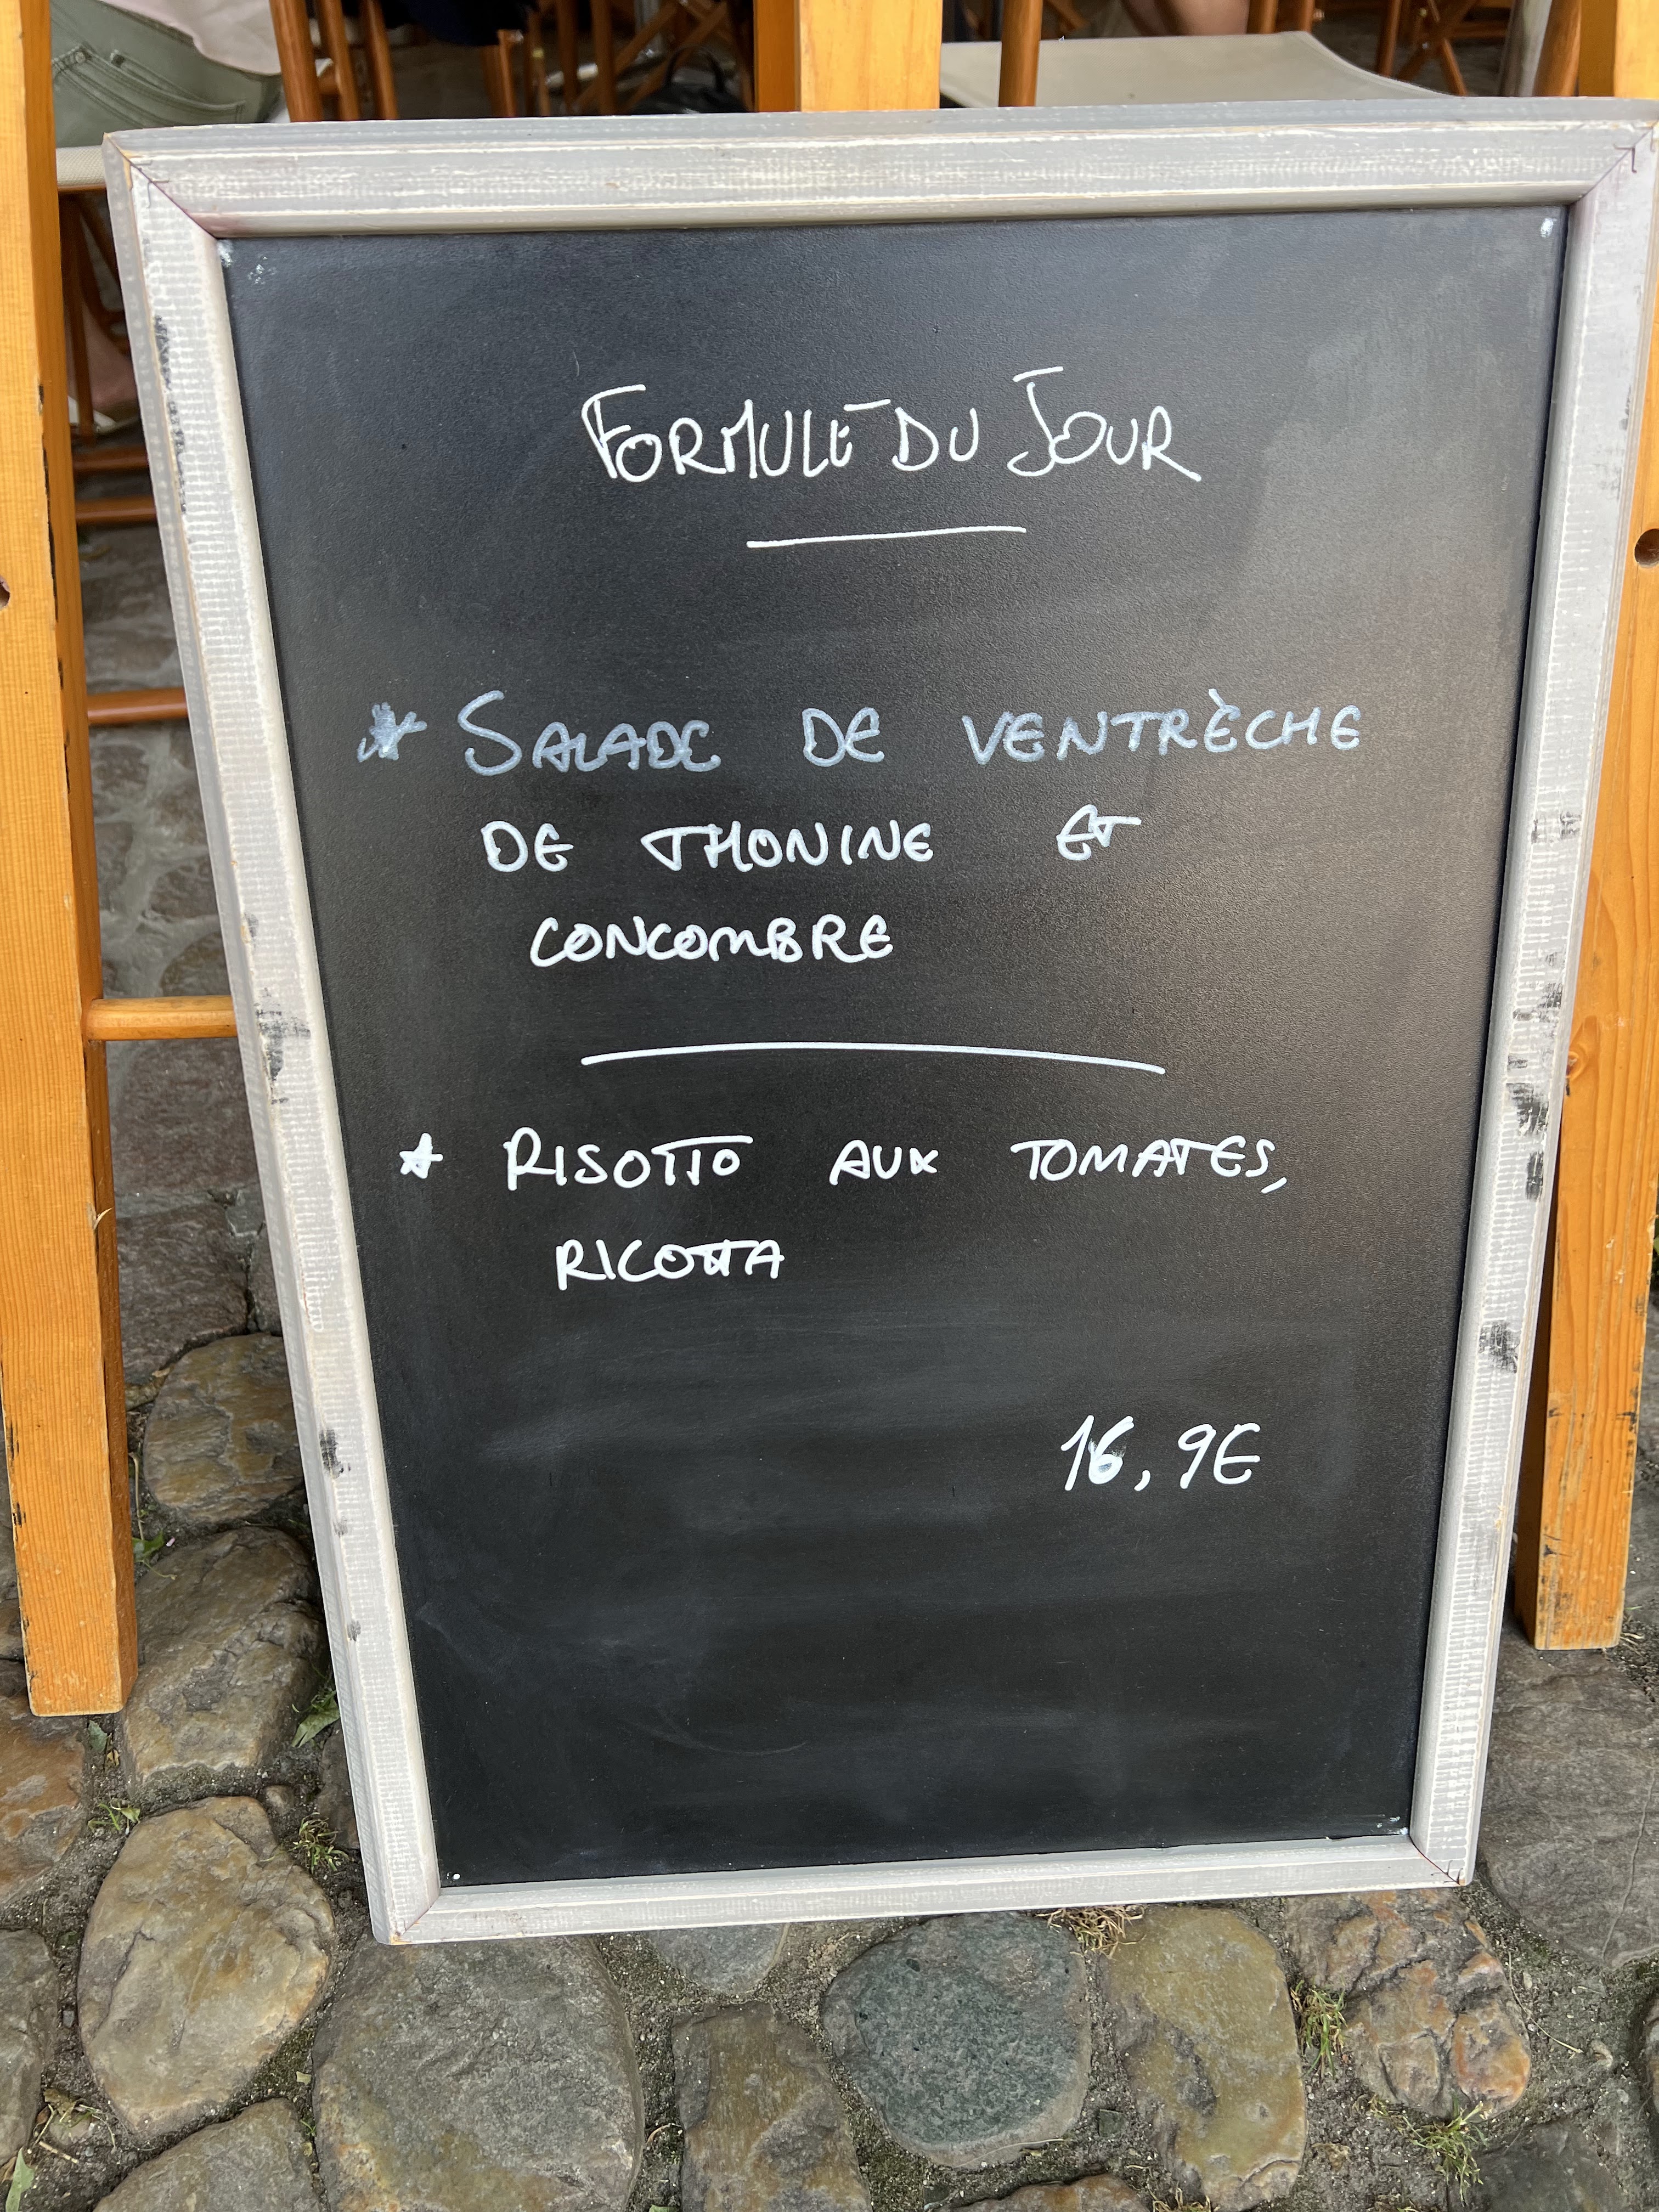 FORMULE DU JOUR
* SALADE DE VENTRÈCHE
DE THONINE ET
CONCOMBRE
* RISOTTO AUX TOMATES,
RICOTTA
16,9€